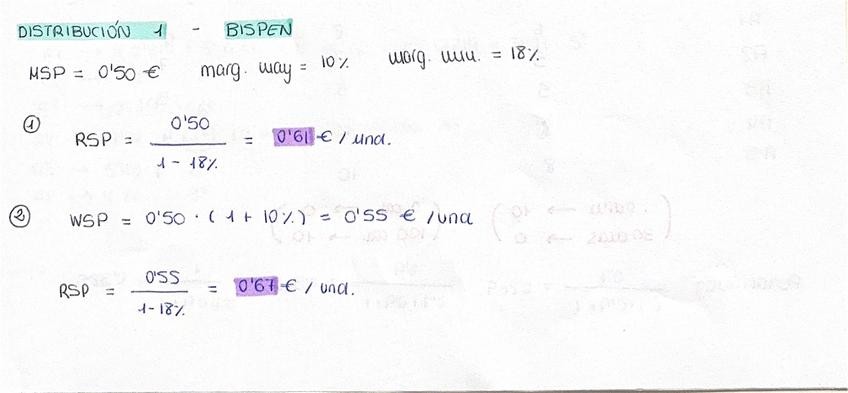 DISTRIBUCIÓN 1 - BISPEN
MSP = 0'50 € marg. may = 10% marg. min. = 18%
① RSP = 0'50 / 1 - 18% = 0'61 € / und.
② WSP = 0'50 · (1 + 10%) = 0'55 € / und
RSP = 0'55 / 1 - 18% = 0'67 € / und.